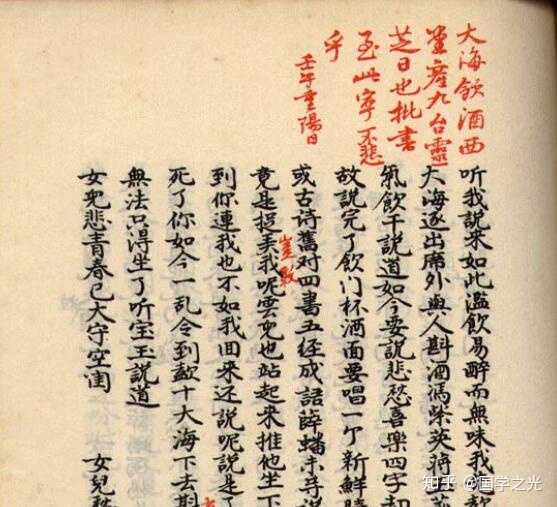 大海飲酒西
堂產九台靈
芝日也批書
至此寧不悲
乎
壬午重陽日
听我說来如此濫飲易醉而無味我
大海逐出席外與人斟酒馮紫英蒋玉
氣飲干說道如今要說悲愁喜樂四字却
故說完了飲门杯酒面要唱一个新鮮時
或古诗舊对四書五経成語薛蟠未等說
竟是捉弄我呢雲児也站起来推他坐下
到你連我也不如我回来还說呢說是了
死了你如今一乱令到十大海下去斟
無法只得坐了听宝玉說道
女児悲青春已大守空闺 女兒愁
知乎 @国学之光